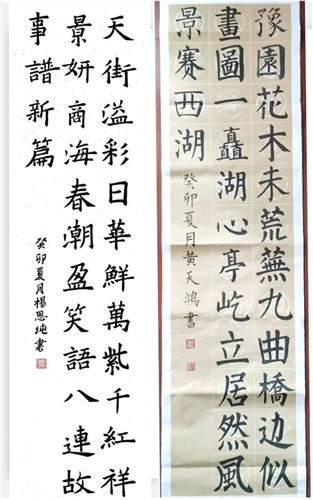 天街溢彩日華鮮萬紫千紅祥
景妍商海春潮盈笑語八連故
事譜新篇
癸卯夏月楊思純書
豫園花木未荒蕪九曲橋边似
畫圖一矗湖心亭屹立居然風
景賽西湖
癸卯夏月黃天鴻書